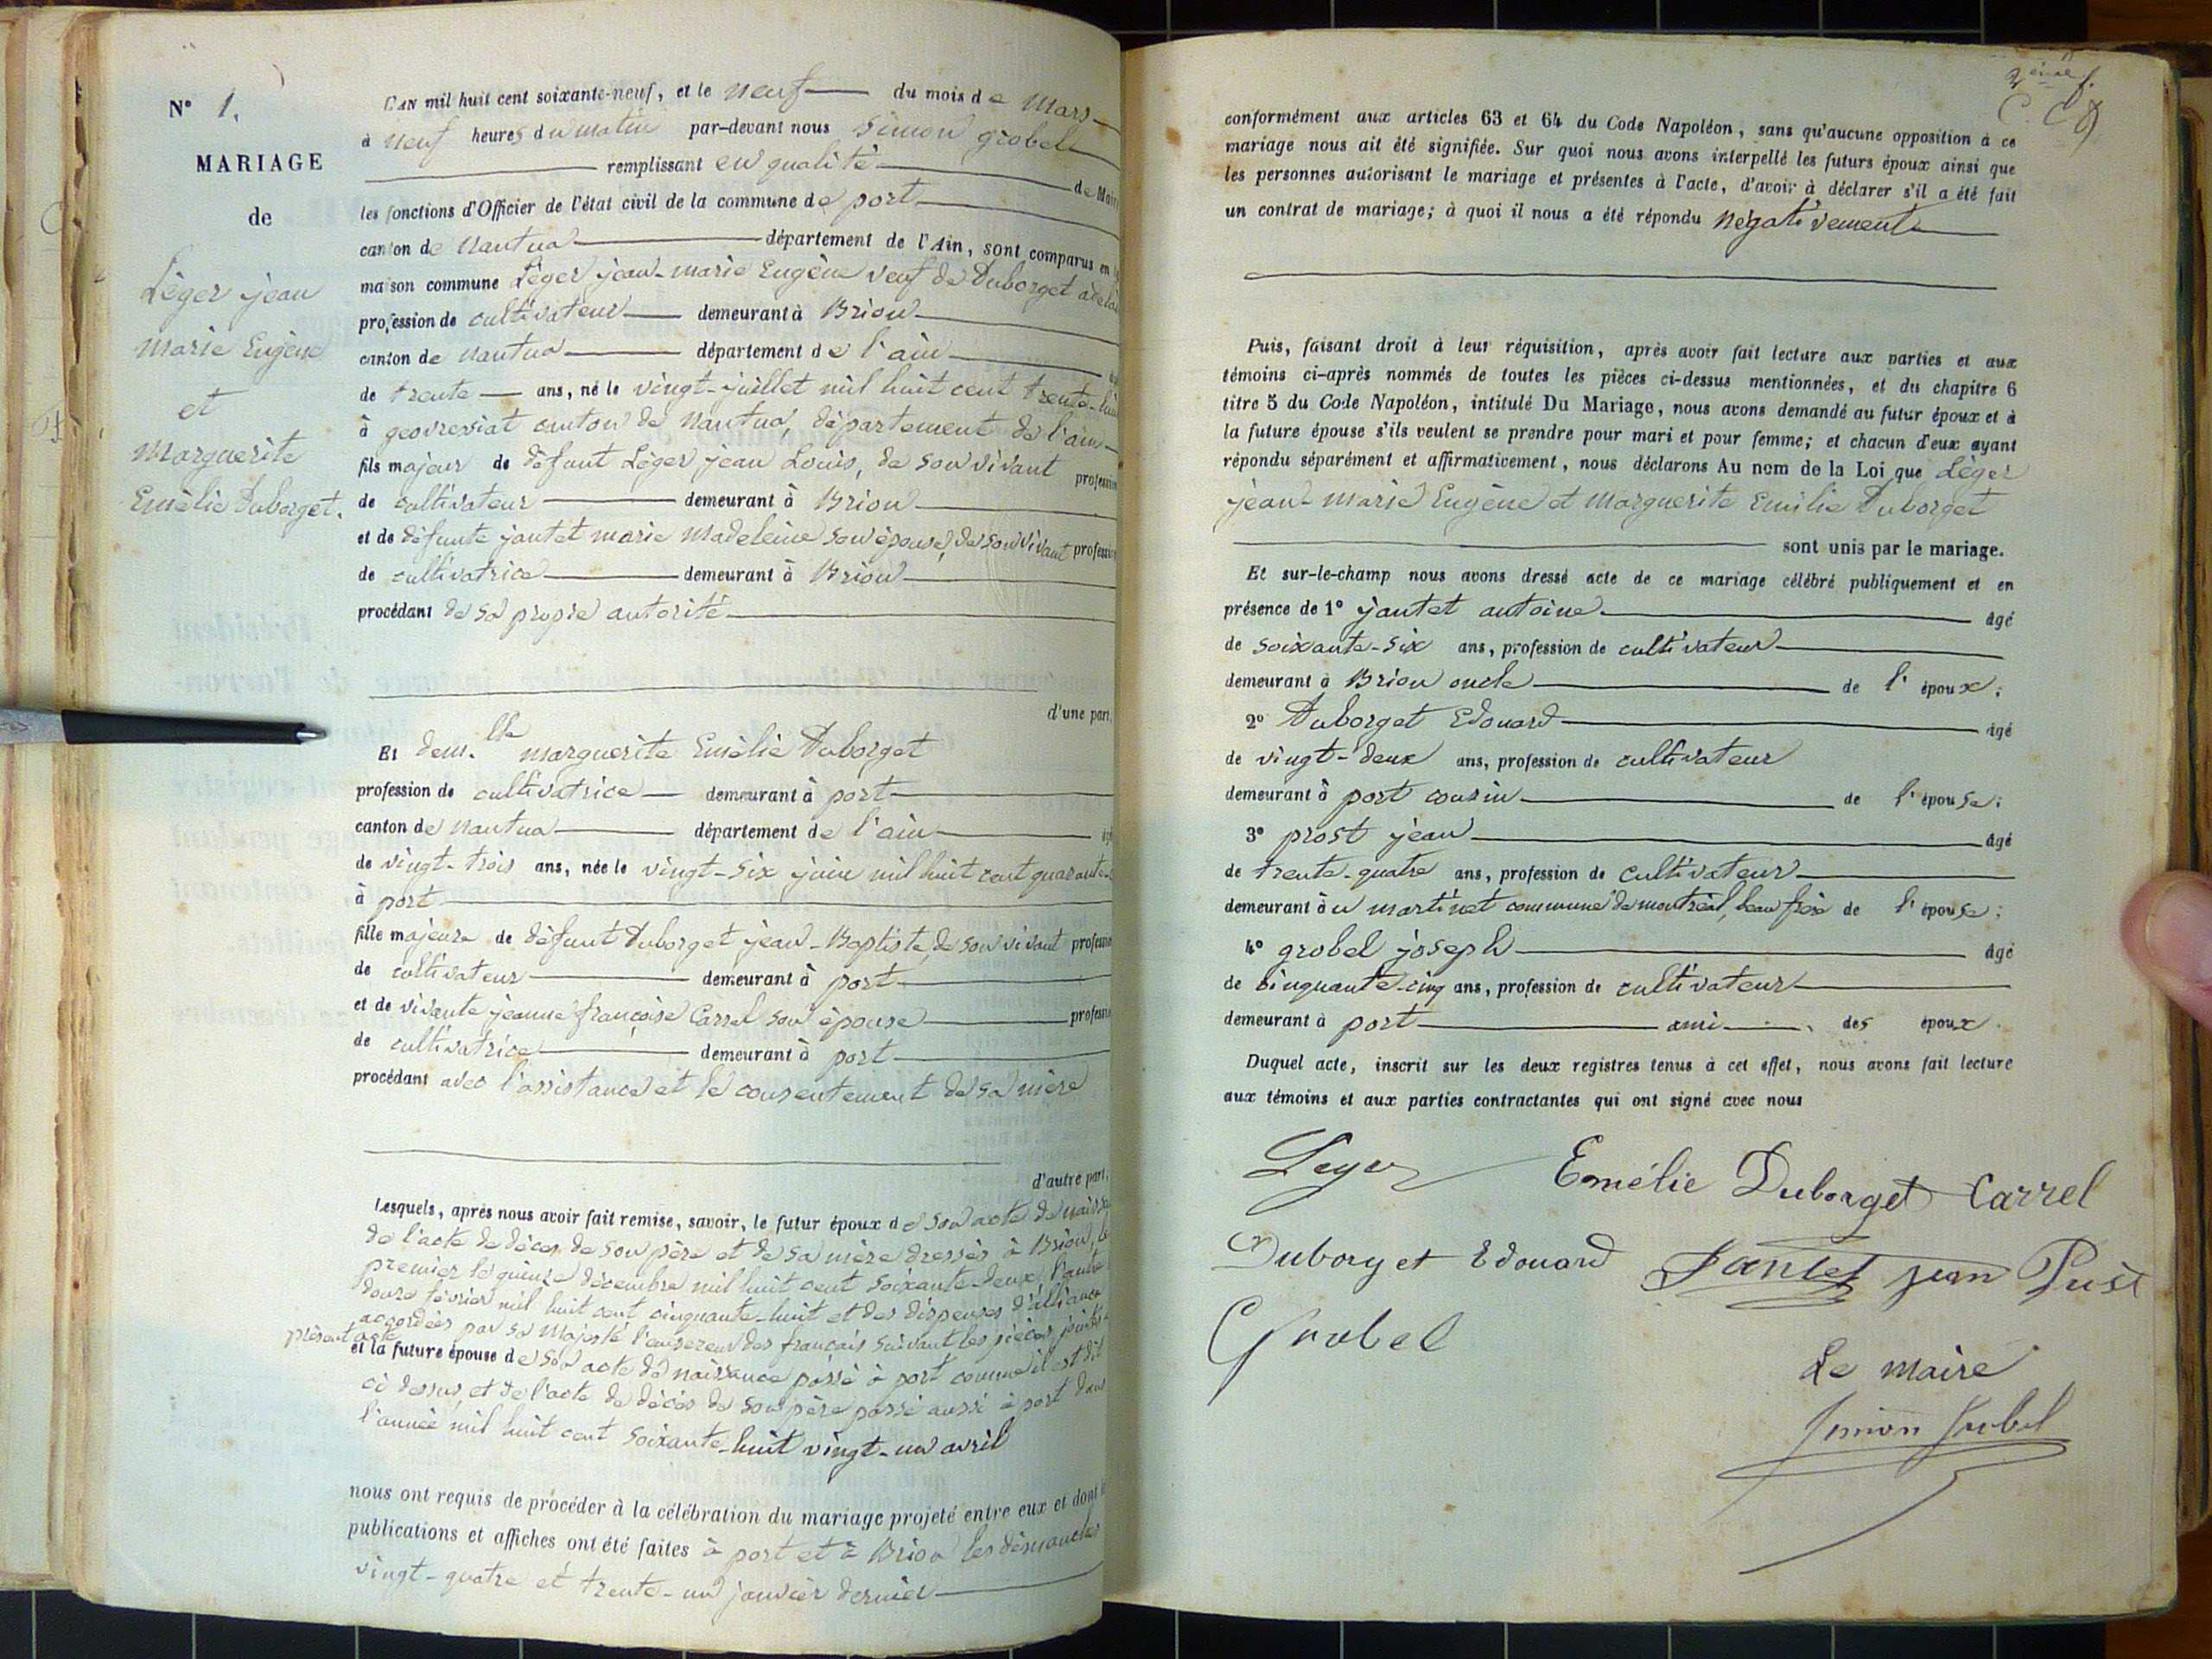 N° 1.
MARIAGE
de
Léger jean
Marie Eugène
et
Marguerite
Emélie Duborget.
L'AN mil huit cent soixante-neuf, et le neuf du mois de Mars
à neuf heures du matin par-devant nous Simon grobel
remplissant en qualité de Maire
les fonctions d'Officier de l'état civil de la commune de port
canton de Nantua département de l'Ain, sont comparus en
maison commune Léger jean-marie Eugène veuf de Duborget
profession de cultivateur demeurant à Brion
canton de Nantua département de l'ain
de trente ans, né le vingt-juillet mil huit cent trente-huit
à geovresiat canton de Nantua, département de l'ain
fils majeur de défunt Léger jean Louis, de son vivant profession
de cultivateur demeurant à Brion
et de défunte jantet marie Madeleine son épouse, de son vivant profession
de cultivatrice demeurant à Brion
procédant de sa propre autorité
d'une part,
Et dem.lle marguerite Emélie Duborget
profession de cultivatrice demeurant à port
canton de Nantua département de l'ain
de vingt-trois ans, née le vingt-six juin mil huit cent quarante
à port
fille majeure de défunt Duborget jean-Baptiste, de son vivant profession
de cultivateur demeurant à port
et de vivante jeanne françoise Carrel son épouse profession
de cultivatrice demeurant à port
procédant avec l'assistance et le consentement de sa mère
d'autre part.
Lesquels, après nous avoir fait remise, savoir, le futur époux de son acte de
de l'acte de décès de son père et de sa mère dressés à Brion, le
premier le quinze décembre mil huit cent soixante-deux, l'autre
douze février mil huit cent cinquante-huit et des dispenses d'alliance
accordées par sa Majesté l'empereur des français suivant les pièces jointes
présent acte
et la future épouse de son acte de naissance passé à port comme il est dit
ci dessus, et de l'acte de décès de son père passé aussi à port dans
l'année mil huit cent soixante-huit vingt-un avril
nous ont requis de procéder à la célébration du mariage projeté entre eux et dont
publications et affiches ont été faites à port et à Brion les dimanches
vingt-quatre et trente-un janvier dernier
conformément aux articles 63 et 64 du Code Napoléon, sans qu'aucune opposition à ce
mariage nous ait été signifiée. Sur quoi nous avons interpellé les futurs époux ainsi que
les personnes autorisant le mariage et présentes à l'acte, d'avoir à déclarer s'il a été fait
un contrat de mariage; à quoi il nous a été répondu négativement
Puis, faisant droit à leur réquisition, après avoir fait lecture aux parties et aux
témoins ci-après nommés de toutes les pièces ci-dessus mentionnées, et du chapitre 6
titre 5 du Code Napoléon, intitulé Du Mariage, nous avons demandé au futur époux et à
la future épouse s'ils veulent se prendre pour mari et pour femme; et chacun d'eux ayant
répondu séparément et affirmativement, nous déclarons Au nom de la Loi que Léger
jean-marie Eugène et Marguerite Emélie Duborget
sont unis par le mariage.
Et sur-le-champ nous avons dressé acte de ce mariage célébré publiquement et en
présence de 1° jantet antoine âgé
de soixante-six ans, profession de cultivateur
demeurant à Brion oncle de l'époux;
2° Duborget Edouard âgé
de vingt-deux ans, profession de cultivateur
demeurant à port cousin de l'épouse;
3° prost jean âgé
de trente-quatre ans, profession de cultivateur
demeurant au martinet commune de montréal, beau frère de l'épouse;
4° grobel joseph âgé
de cinquante-cinq ans, profession de cultivateur
demeurant à port ami des époux.
Duquel acte, inscrit sur les deux registres tenus à cet effet, nous avons fait lecture
aux témoins et aux parties contractantes qui ont signé avec nous
Leger Emélie Duborget Carrel
Duborget Edouard Jantet jean Prost
Grobel
Le maire
Simon Grobel